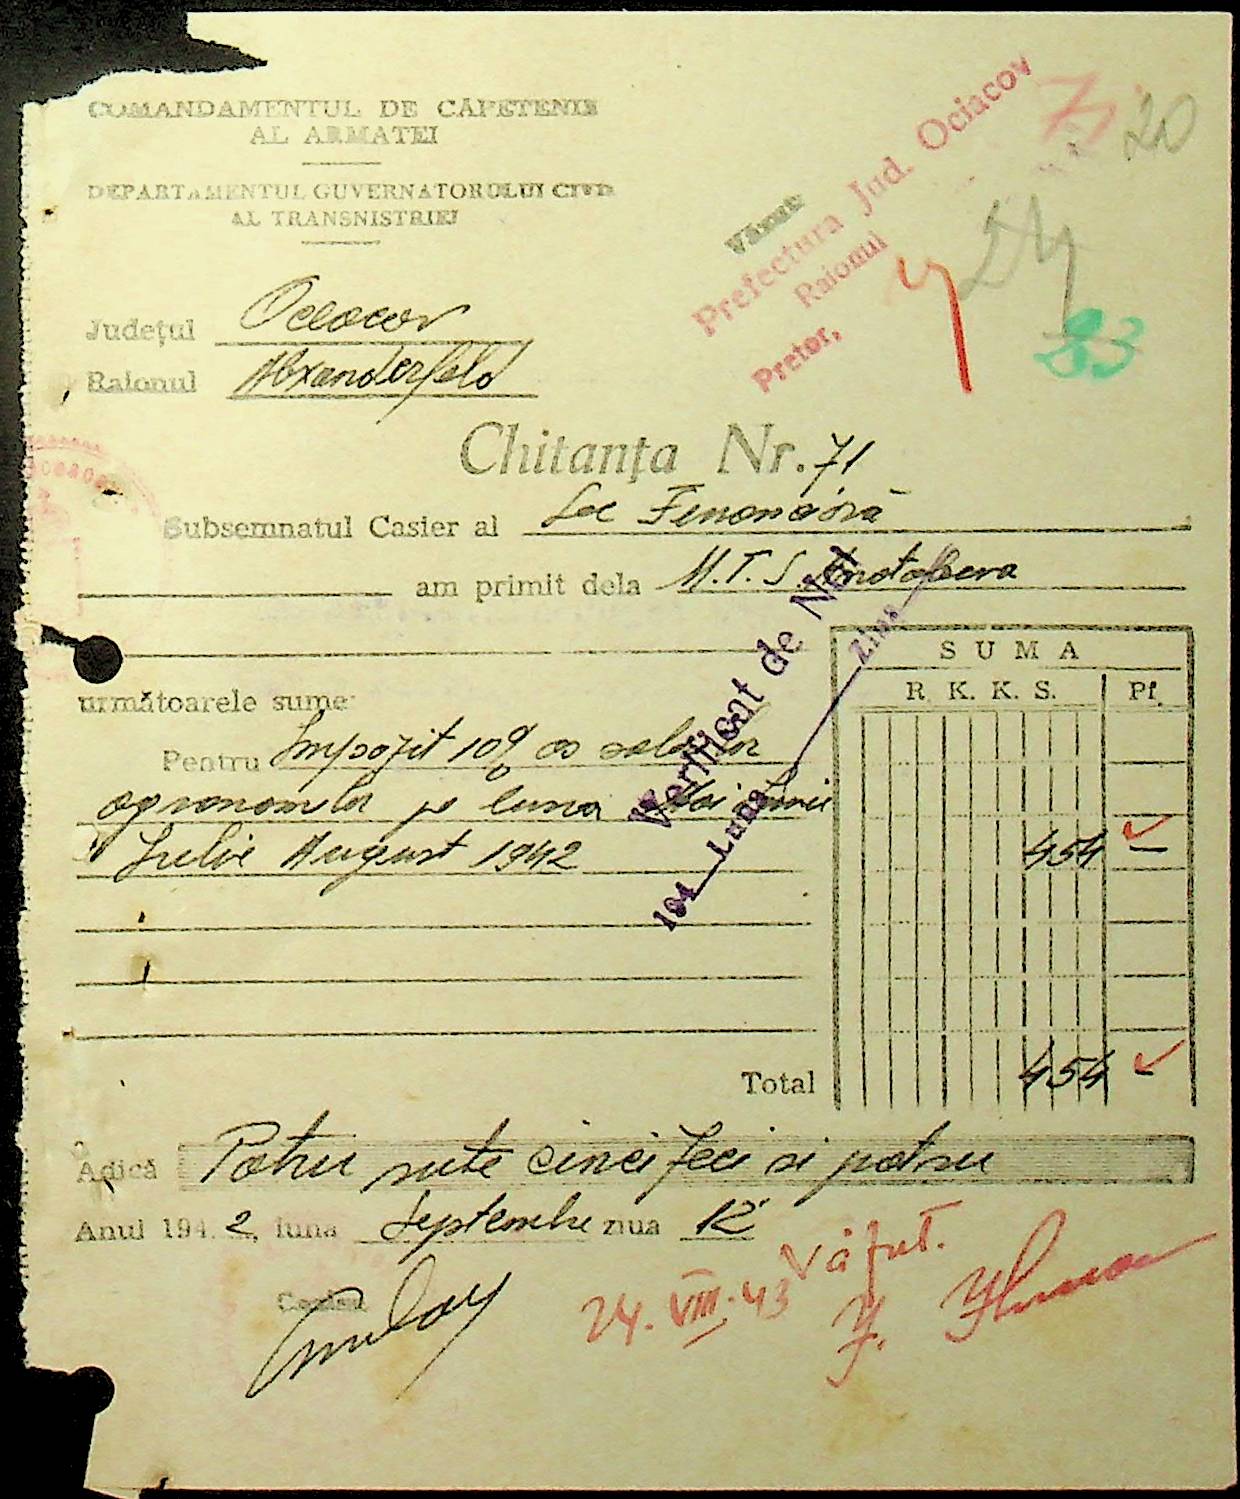 COMANDAMENTUL DE CAPETENIE
AL ARMATEI
DEPARTAMENTUL GUVERNATORULUI CIVIL
AL TRANSNISTRIEI
Văzut
Prefectura Jud. Ociacov
Raionul
Pretor,
20
83
Județul Oceacov
Raionul Alxanderfeld
Chitanța Nr. 71
Subsemnatul Casier al Sec Financiară
am primit dela M.T.S.
SUMA
R. K. K. S. Pf.
următoarele sume:
Pentru Impozit 10%
agronomilor pe luna Mai Iunii
Iulie August 1942 454 —
Verificat de Noi
194 Luna Ziua
Total 454 —
Adică Patru sute cinci zeci si patru
Anul 1942, luna Septembrie ziua 12
Casier
Văzut.
24.VIII.43